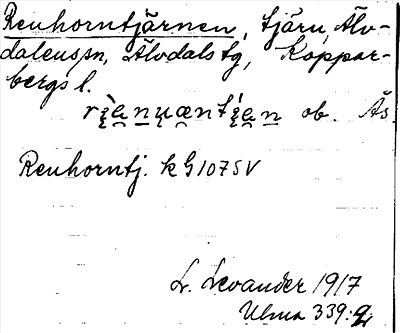 Renhorntjärnen, tjärn, Älv-
dalens sn, Älvdals tg, Koppar-
bergs l.
ob. Äs.
Renhorntj. k G 107 SV
L. Levander 1917
Ulma 339:2